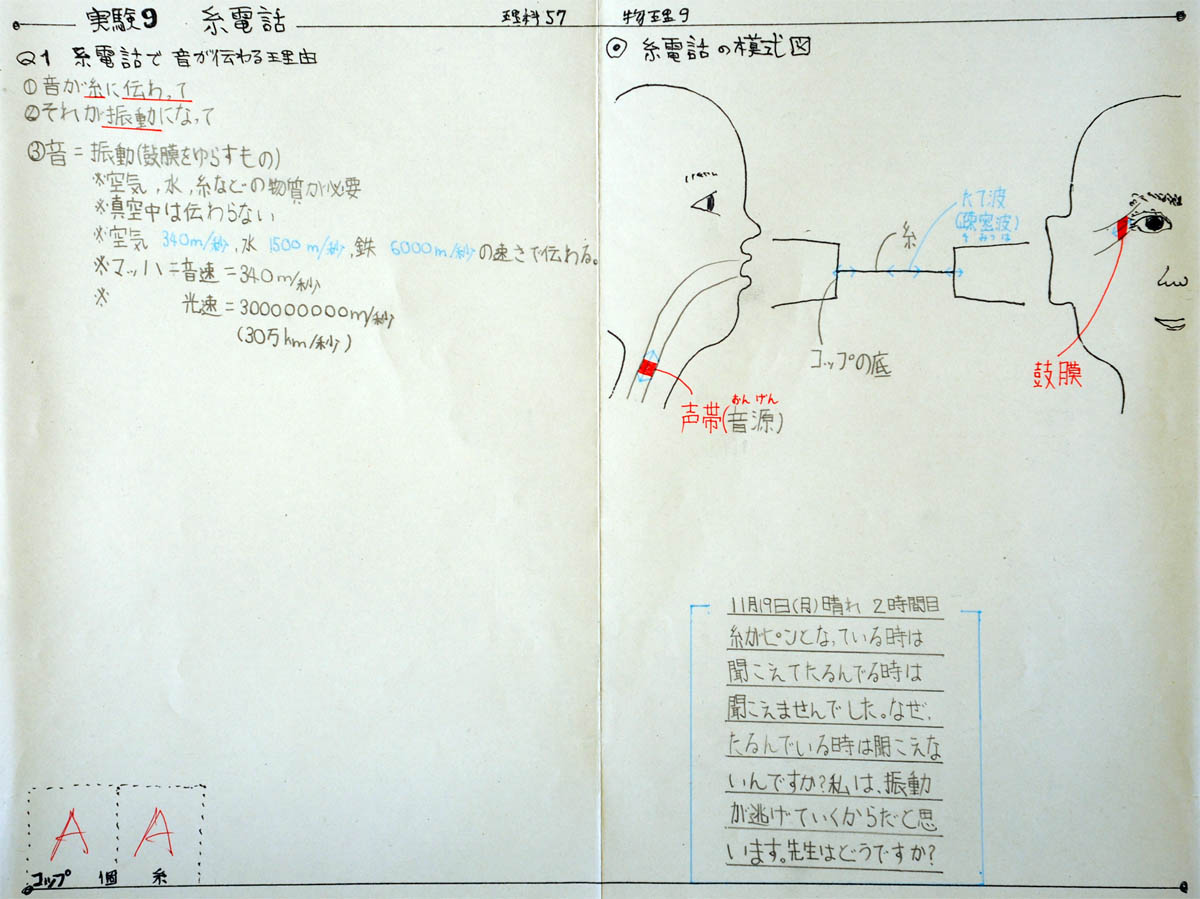 実験9 糸電話
理科57
Q1 糸電話で音が伝わる理由
①音が糸に伝わって
②それが振動になって
③音=振動(鼓膜をゆらすもの)
※空気,水,糸などの物質が必要
※真空中は伝わらない
※空気 340m/秒,水 1500m/秒,鉄 6000m/秒の速さで伝わる。
※マッハ=音速=340m/秒
※ 光速=300000000m/秒
(30万km/秒)
A A
コップ 個 糸
物理9
◎ 糸電話の模式図
たて波
(疎密波)
そみつは
糸
コップの底
鼓膜
おんげん
声帯(音源)
11月19日(月)晴れ 2時間目
糸がピンとなっている時は
聞こえてたるんでる時は
聞こえませんでした。なぜ、
たるんでいる時は聞こえな
いんですか?私は、振動
が逃げていくからだと思
います。先生はどうですか?